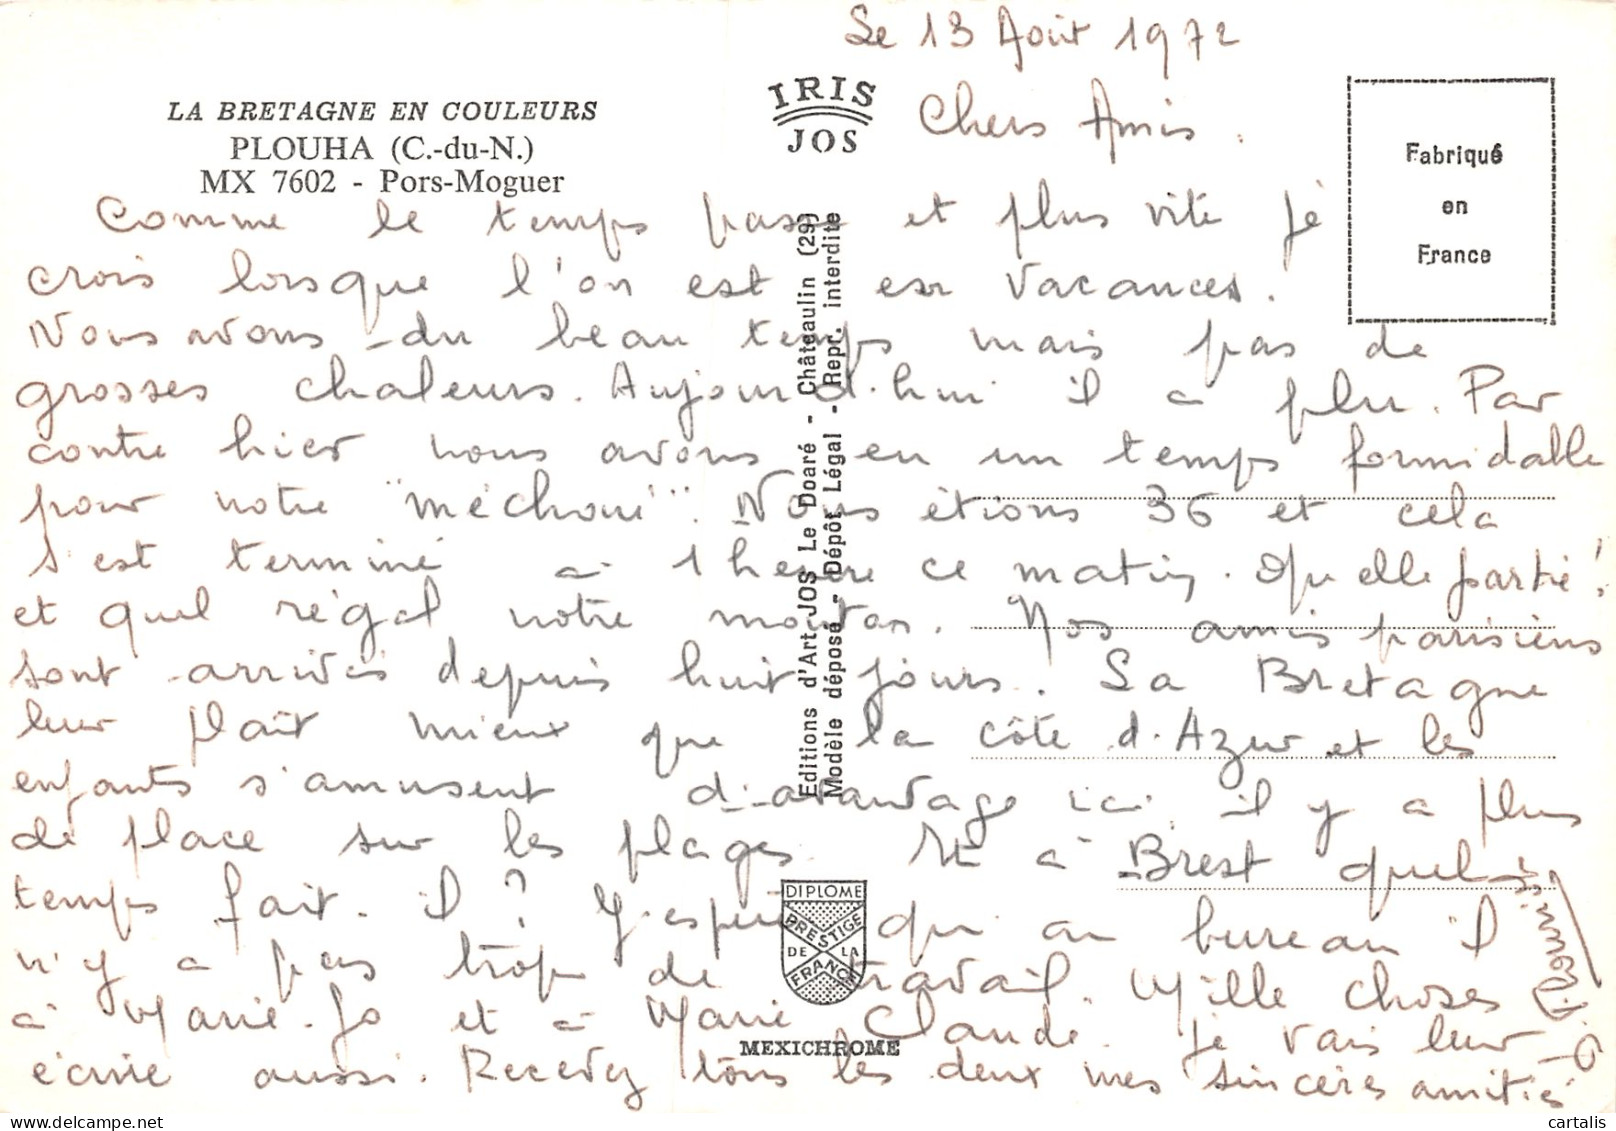 Le 13 Août 1972
LA BRETAGNE EN COULEURS
PLOUHA (C.-du-N.)
MX 7602 - Pors-Moguer
IRIS
JOS
Chers Amis.
Fabriqué
en
France
Comme le temps passe et plus vite je
crois lorsque l'on est en vacances.
Nous avons du beau temps mais pas de
grosses chaleurs. Aujourd'hui il a plu. Par
contre hier nous avons eu un temps formidable
pour notre "méchoui". Nous étions 36 et cela
s'est terminé à 1 heure ce matin. Quelle partie!
et quel régal notre mouton. Nos amis parisiens
sont arrivés depuis huit jours. La Bretagne
leur plaît mieux que la côte d'Azur et les
enfants s'amusent d'avantage ici il y a plus
de place sur les plages. Et à Brest quel
temps fait-il? J'espère qui au bureau il
n'y a pas trop de travail. Mille choses
à Marie-Jo et à Marie Claude. Je vais leur
écrire aussi. Recevez tous les deux mes sincères amitiés
Editions d'Art JOS Le Doaré - Châteaulin (29)
Modèle déposé - Dépôt Légal - Rept. interdite
DIPLOME
PRESTIGE
DE LA
FRANCE
MEXICHROME
cartalis